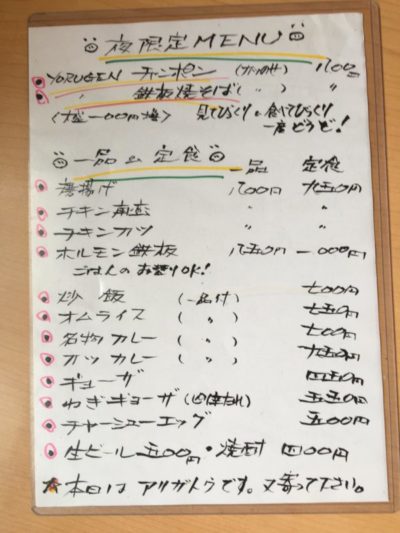 夜限定MENU
YORUGEN チャンポン
〃 鉄板焼そば(〃) 〃
見てびっくり、食べてびっくり
一度どうぞ!
一品&定食 一品 定食
唐揚げ 八00円 九五0円
チキン南蛮 〃 〃
チキンカツ 〃 〃
ホルモン鉄板 八五0円 一000円
ごはんのお替りOK!
炒飯 七00円
オムライス (〃) 七五0円
名物カレー (〃) 七00円
カツカレー (〃) 九五0円
ギョーザ 四五0円
ねぎギョーザ 五五0円
チャーシューエッグ 五00円
生ビール 五00円・焼酎 四00円
本日はアリガトウです。又寄って下さい。